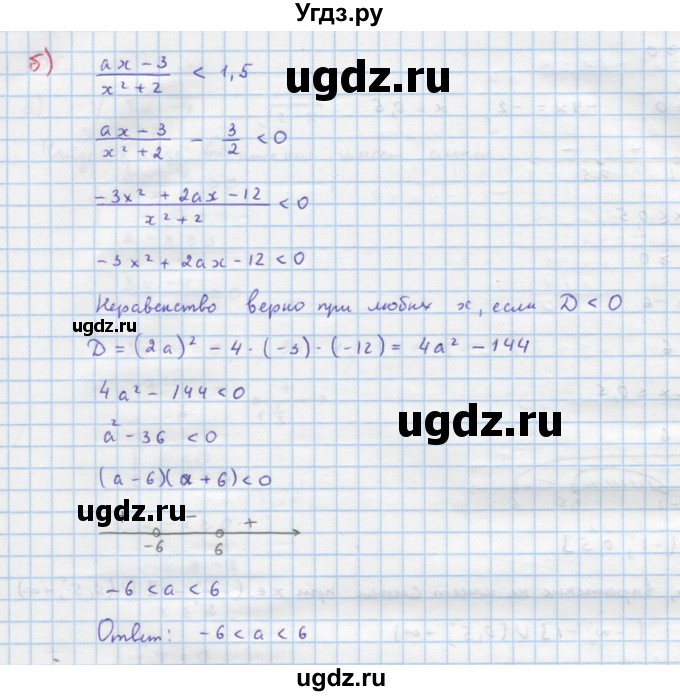 Угдз.ру
б) (ax - 3)/(x² + 2) < 1,5
ugdz.ru
(ax - 3)/(x² + 2) - 3/2 < 0
(-3x² + 2ax - 12)/(x² + 2) < 0
ugdz.ru
-3x² + 2ax - 12 < 0
Неравенство верно при любых x, если D < 0
ugdz.ru
D = (2a)² - 4 · (-3) · (-12) = 4a² - 144
4a² - 144 < 0
ugdz.ru
a² - 36 < 0
(a - 6)(a + 6) < 0
ugdz.ru
- +
-6 6
-6 < a < 6
ugdz.ru
Ответ: -6 < a < 6